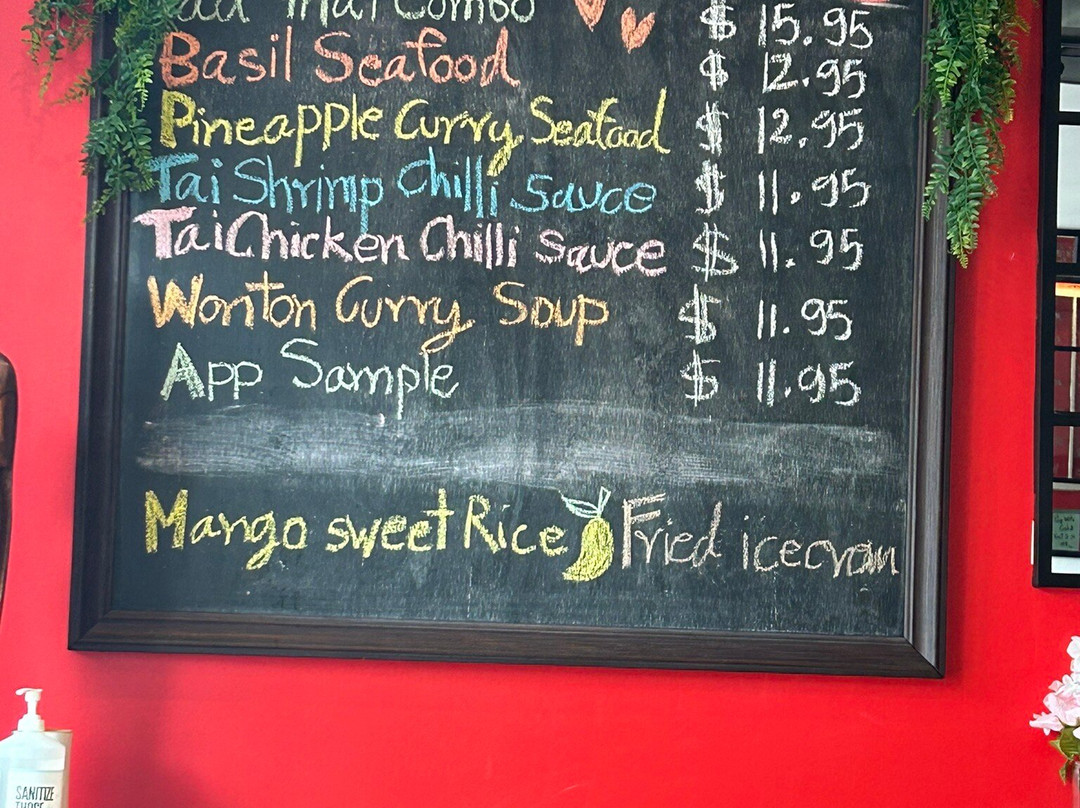 Pad Thai Combo $ 15.95
Basil Seafood $ 12.95
Pineapple Curry Seafood $ 12.95
Tai Shrimp Chilli Sauce $ 11.95
Tai Chicken Chilli Sauce $ 11.95
Wonton Curry Soup $ 11.95
App Sample $ 11.95
Mango sweet Rice Fried icecream
SANITIZE
THOSE